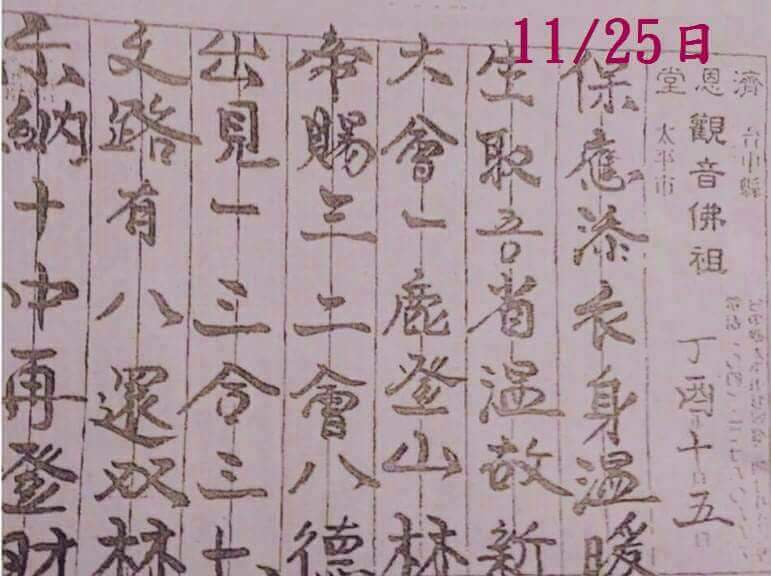 11/25日
濟恩堂
台中縣
太平市
觀音佛祖
丁酉年十月五日
保應添衣身溫暖
生取吾省溫故新
大會一鹿登山林
帝賜三二會八德
出見一三合三七
文路有八還双林
示納十中再登財